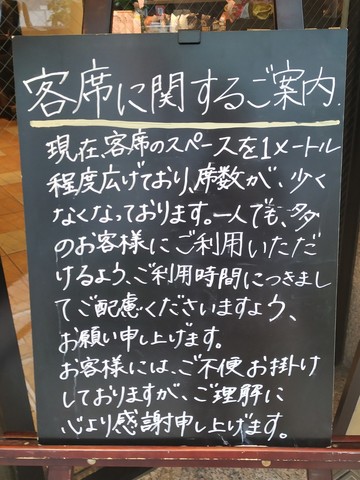 客席に関するご案内.
現在、客席のスペースを1メートル
程度広げており、席数が、少く
なくなっております。一人でも、多く
のお客様にご利用いただ
けるよう、ご利用時間につきまし
てご配慮くださいますよう、
お願い申し上げます。
お客様には、ご不便お掛け
しておりますが、ご理解に
心より感謝申し上げます。